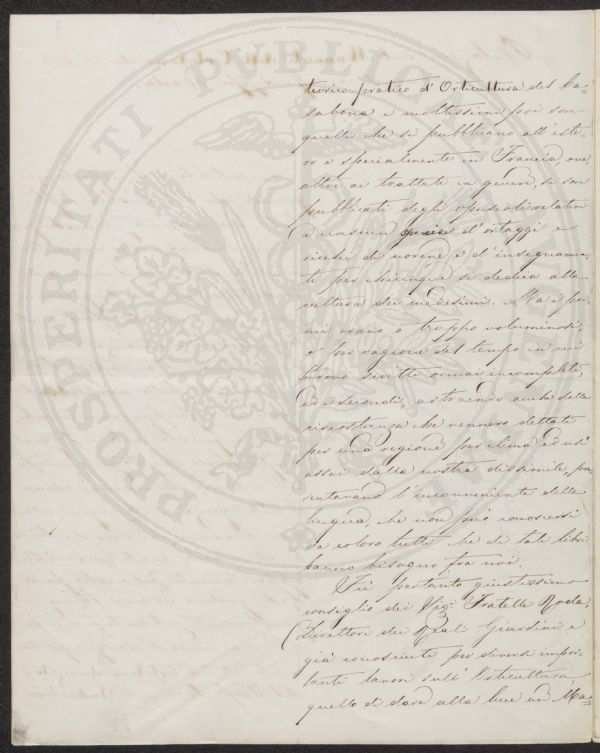 teorico-pratico d'Orticultura del Ca=
sabona e moltissimi poi son
quelli che si pubblicano all'este=
ro e specialmente in Francia, ove
oltre ai trattati in genere, si son
pubblicati degli opuscoli relativi
a ciascun specie d'ortaggi e
ricchi di norme e d'insegnamen=
ti per chiunque si dedica alla
cultura dei medesimi. Ma i pri=
mi erano o troppo voluminosi,
o per ragione del tempo in cui
furono scritti ormai incompleti,
ed i secondi, astraendo anche della
circostanza che vennero dettati
per una regione per clima ed usi
assai dalla nostra dissimile, pre
sentavano l'inconveniente della
lingua, che non può conoscersi
da coloro tutti che di tali libri
hanno bisogno fra noi.
Fu pertanto giustissimo
consiglio dei Sigri Fratelli Roda,
Direttori dei Reali Giardini e
già conosciuti per diversi impor=
tanti lavori sull'Orticultura
quello di dare alla luce un Ma=
PROSPERITATI PUBLICAE